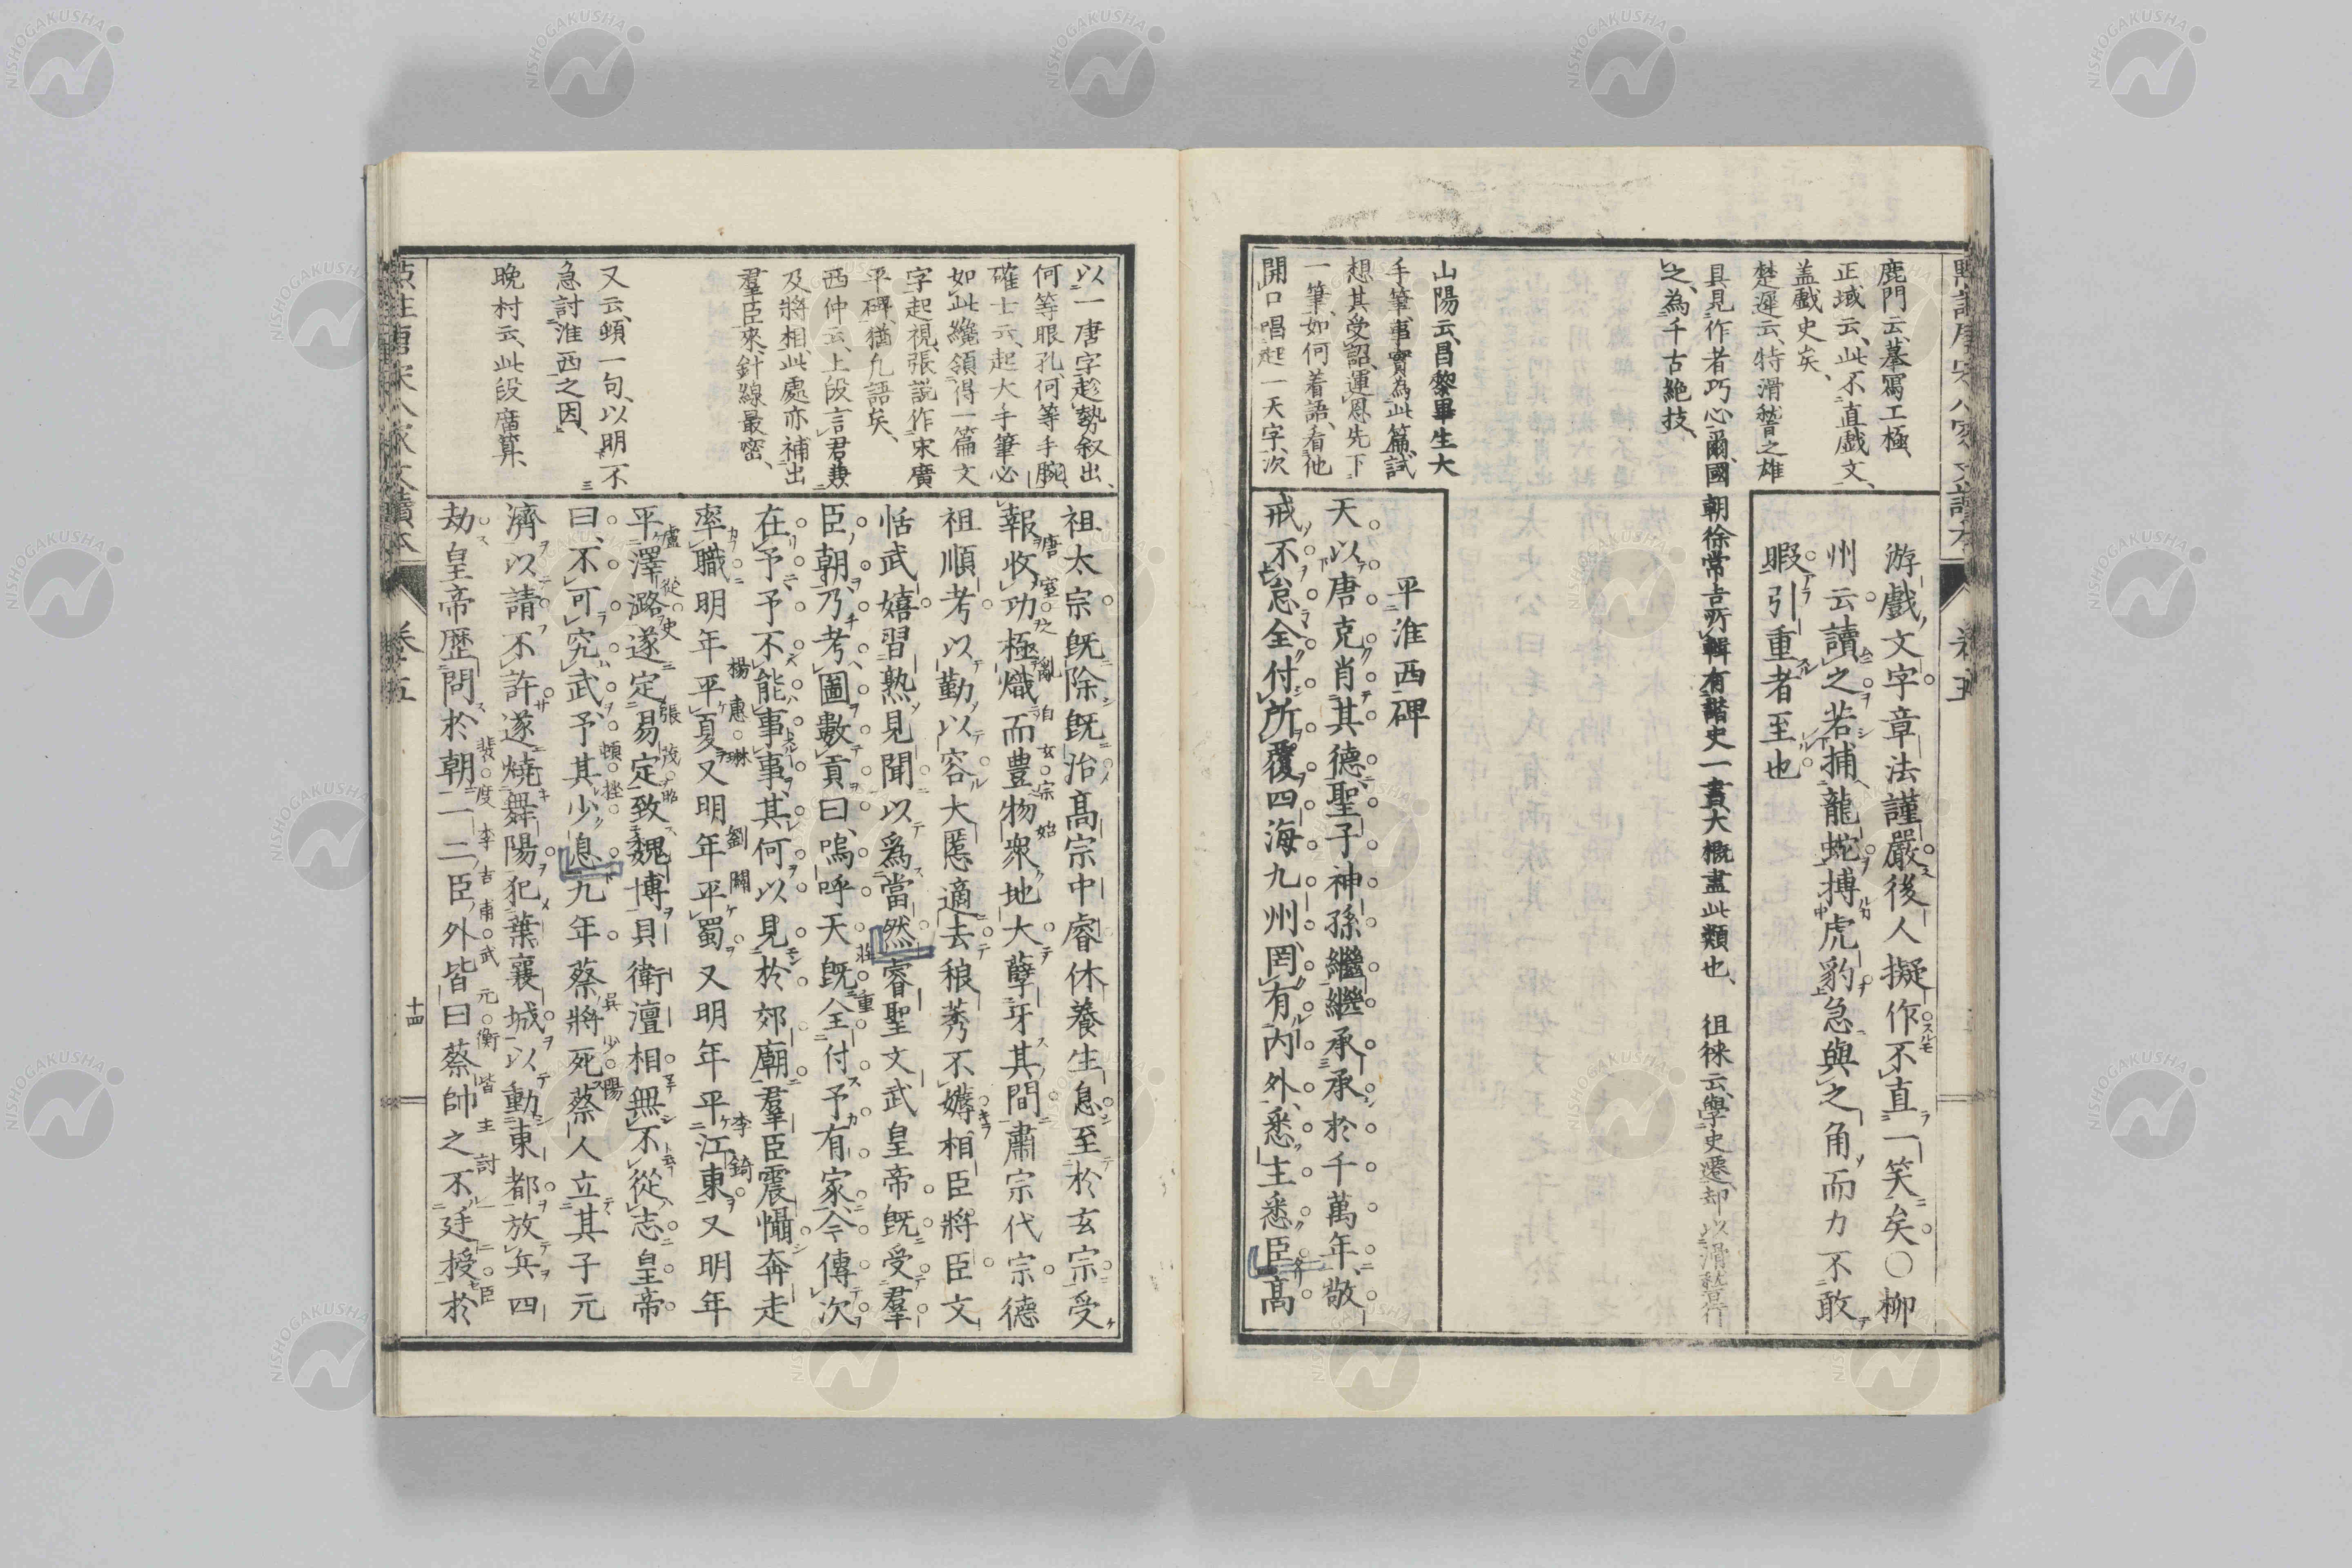 鹿門云、摹寫工極
正域云、此不直戲文、
盖戲史矣、
楚遲云、特滑稽之雄
具見作者巧心爾、國朝徐常吉所輯有諧史一書大概盡此類也、 徂徠云、學史遷、却以滑稽行
之、為千古絶技、
游戲文字章法謹嚴後人擬作不直一笑矣○柳
州云讀之若捕龍蛇搏虎豹急與之角而力不敢
暇引重者至也
山陽云、昌黎畢生大
手筆、事實為此篇、試
想其受詔、運恩先下
一筆、如何着語、看他
開口唱起一天字、次
平淮西碑
天以唐克肖其德聖子神孫繼繼承承於千萬年、敬
戒不怠全付所覆四海九州罔有内外、悉主悉臣高
以一唐字趁勢叙出、
何等眼孔何等手腕、
確士云、起大手筆必
如此纔領得一篇文
字起視、張説作宋廣
平碑猶凡語矣、
西仲云、上段言君兼
及將相、此處亦補出
羣臣來、針線最密、
又云、頓一句、以明不
急討淮西之因、
晩村云、此段廣算、
祖太宗既除既治高宗中睿休養生息至於玄宗受
報收功極熾而豊物衆地大孽牙其間肅宗代宗德
祖順考以勤以容大慝適去稂莠不薅相臣將臣文
恬武嬉習熟見聞以爲當然睿聖文武皇帝既受羣
臣朝、乃考圖數貢曰、嗚呼天既全付予有家、今傳次
在予予不能事事、其何以見於郊廟羣臣震懾奔走
率職明年平夏又明年平蜀又明年平江東又明年
平澤潞遂定易定致魏博貝衛澶相無不從志皇帝
曰、不可究武、予其少息九年蔡將死蔡人立其子元
濟以請不許遂燒舞陽犯葉襄城以動東都放兵四
劫皇帝歷問於朝一二臣外皆曰蔡帥之不廷授於
唐室之亂自玄宗始
莊重
楊惠琳
劉闢
李錡
盧從史
張茂昭
頓挫
吳少陽
裴度李吉甫武元衡皆主討
点註唐宋八家文讀本
卷五
十四
NISHOGAKUSHA